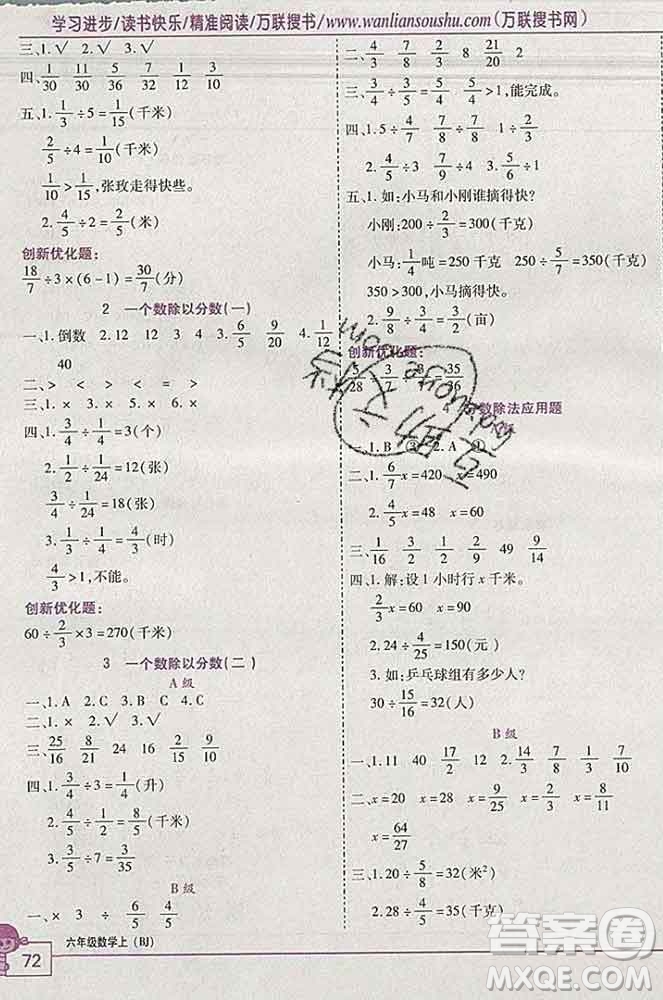 学习进步/读书快乐/精准阅读/万联搜书/www.wanliansoushu.com(万联搜书网)
三、1.√ 2.√ 3.√
四、1/30 11/30 5/24 7/16 1/12 12/13
五、1. 1/3÷5=1/15(千米)
2/5÷4=1/10(千米)
1/10>1/15,张玫走得快些。
2. 4/5÷2=2/5(米)
创新优化题:
18/7÷3×(6-1)=30/7(分)
2 一个数除以分数(一)
一、1.倒数 2.12 12 3 4 3. 6/5 9/20 4. 1/12
40
二、> < > = < =
三、1.× 3.× 3.× 4.×
四、1.1÷1/3=3(个)
2/3÷1/18=12(张)
3/4÷1/24=18(张)
2. 1/3÷1/4=4/3(时)
4/3>1,不能。
创新优化题:
60÷2/3×3=270(千米)
3 一个数除以分数(二)
A 级
一、1.A 2.C 3.B 4.C
二、1.× 2.√ 3.√
三、25/16 8/21 24 16 2/15 7/8
四、1. 3/4÷3=1/4(升)
2. 4/5÷1/2=8/5(千米)
3. 3/5÷7=3/35
B 级
一、× 3 6/5 4/5
六年级数学上(BJ)
72
二、4/3 7/8 2/3 8 21/20 2
三、3/4÷3/5=5/4 5/4>1,能完成。
四、1.5÷4/7 7/8÷7/8 1÷2/3
2. 4/5÷2/3 7/9÷4
五、1.如:小马和小刚谁摘得快?
小刚:200÷2/3=300(千克)
小马:1/4吨=250千克 250÷5/7=350(千克)
350>300,小马摘得快。
2. 9/8÷3/4=3/2(亩)
创新优化题:
数除法应用题
一、1.B ③ 2.A ①
二、1. 6/7x=420 x=490
2. 4/5x=48 x=60
三、1/16 3/22 2/11 49 9/14
四、1.解:设1小时行x千米。
2/3x=60 x=90
2.24÷4/25=150(元)
3.如:乒乓球组有多少人?
30÷15/16=32(人)
B 级
一、1.11 40 17/2 2. 14/3 7/8 1/2 7/10
二、x=20 x=28 x=9/25 x=8/11
x=64/27
三、1.20÷5/8=32(米²)
2.28÷4/5=35(千克)
答案圈
MXQE.COM